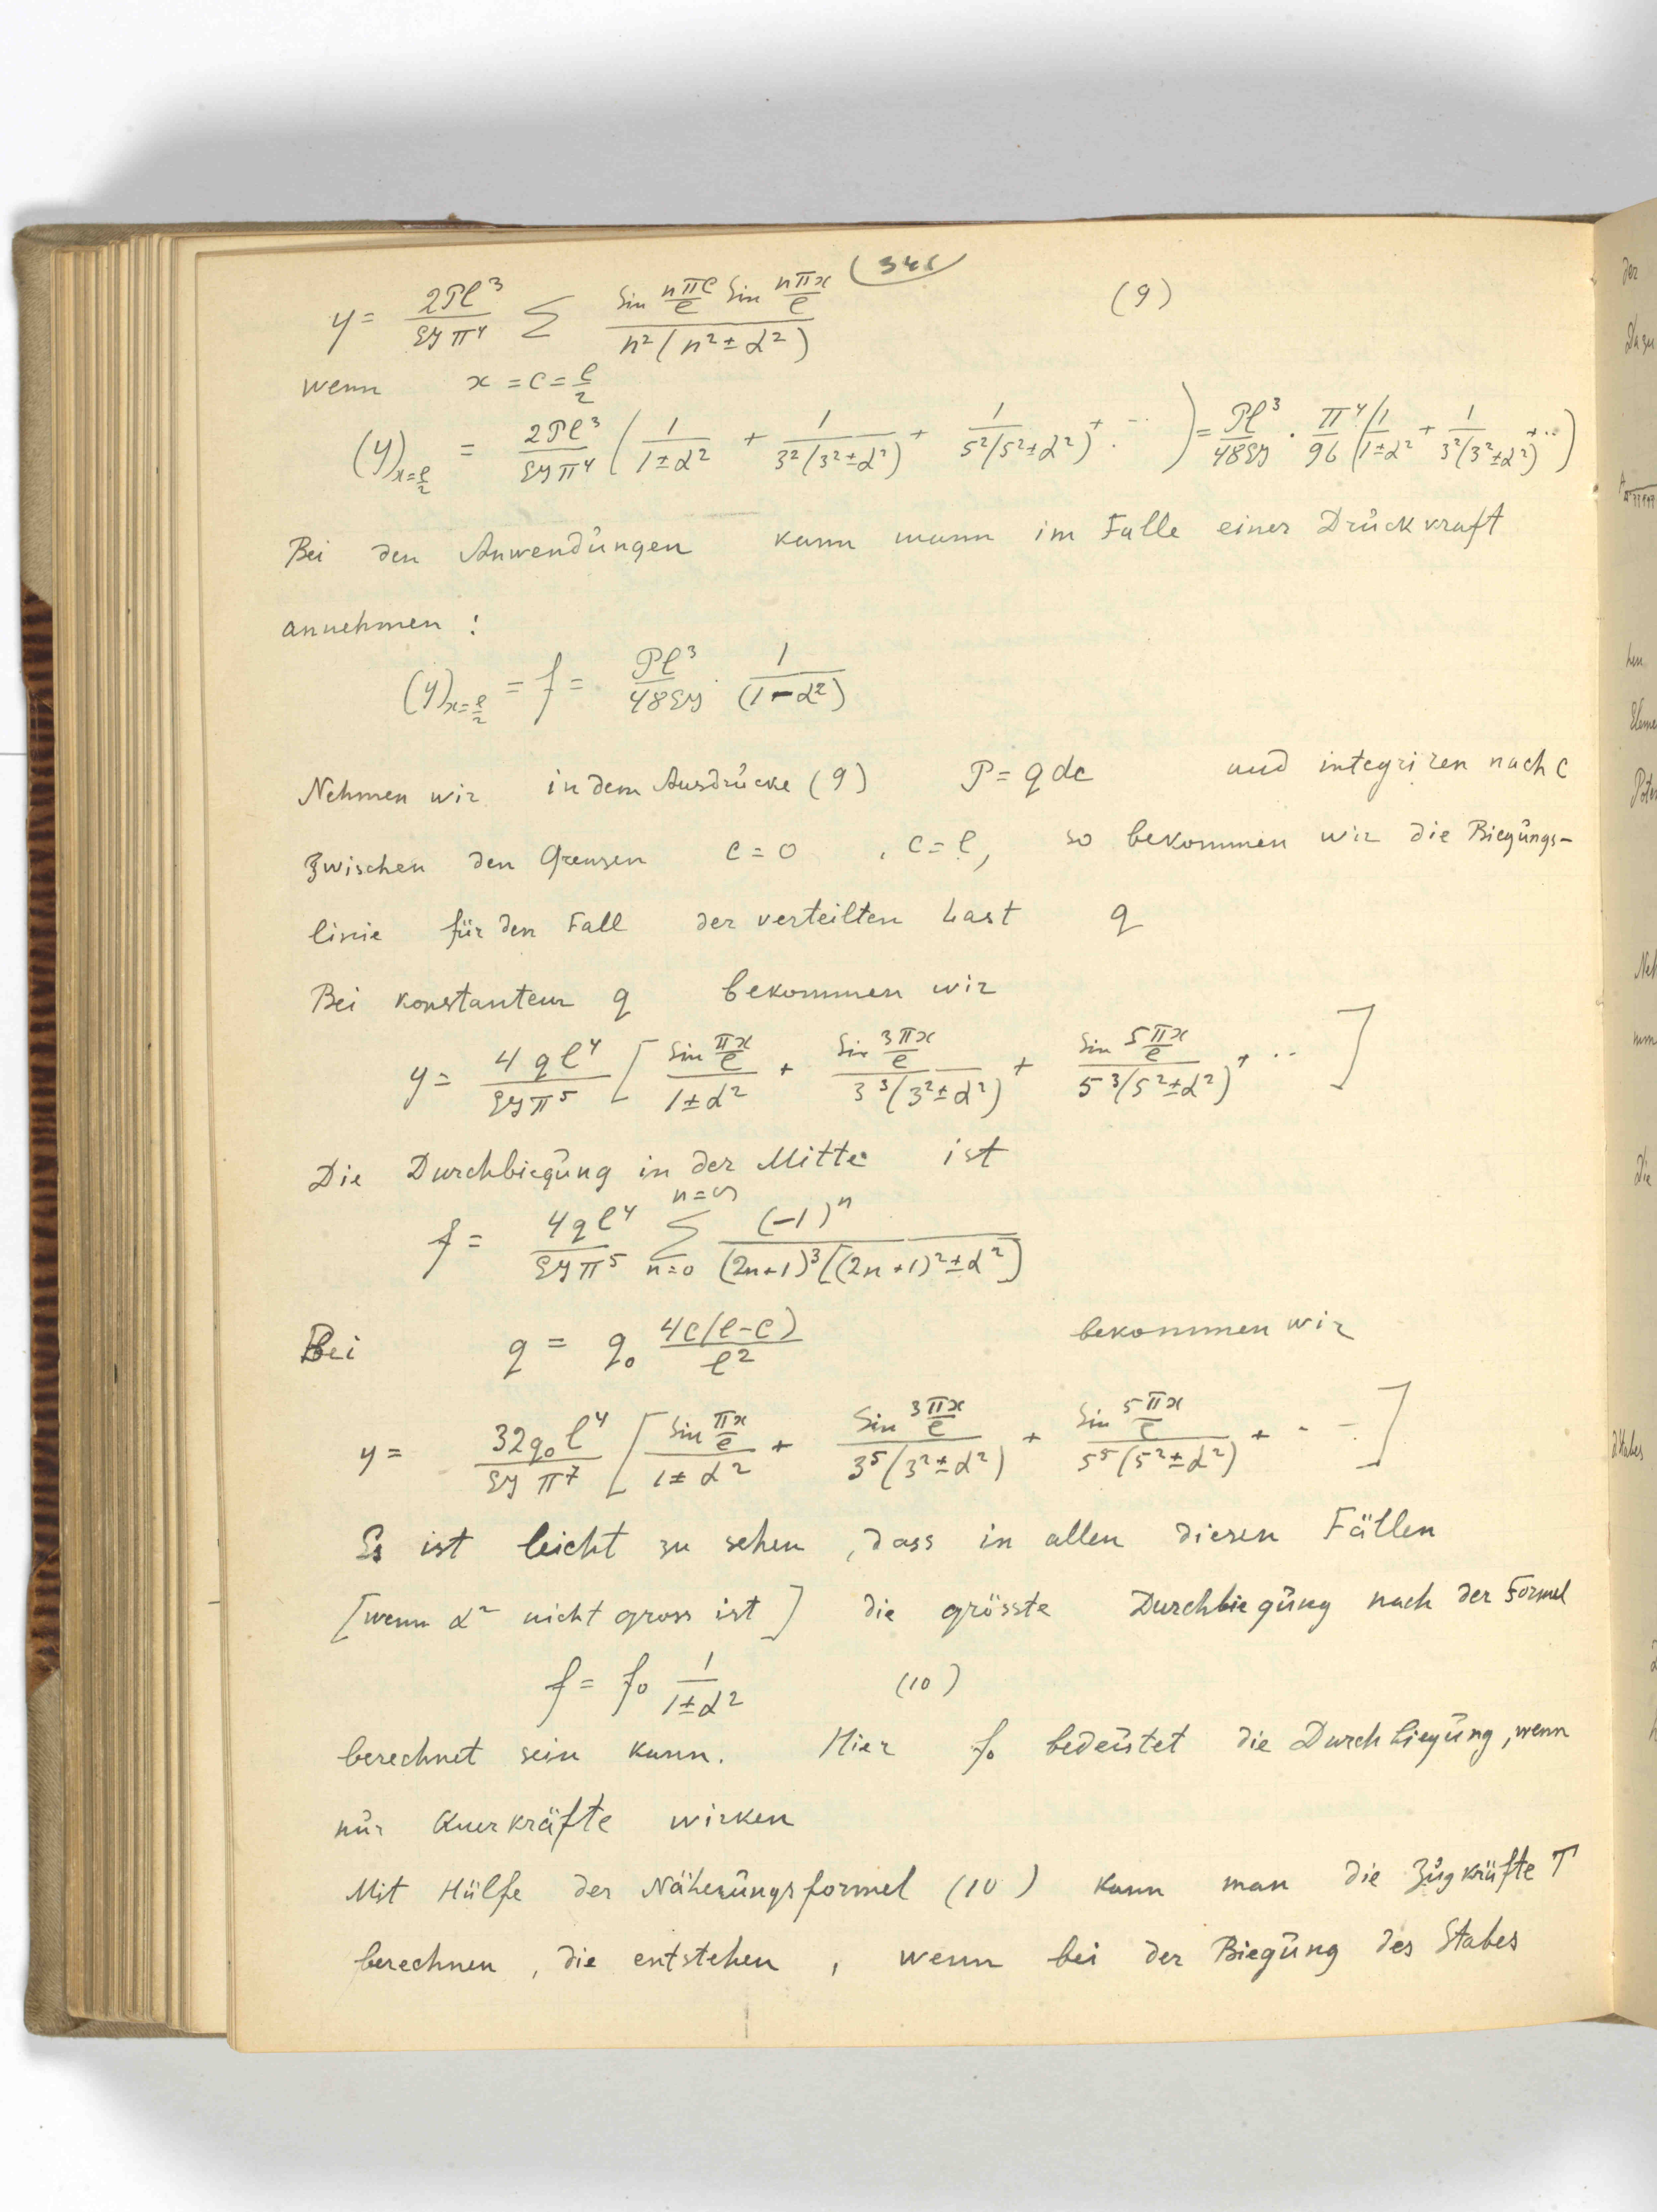 (346
y = 2Pl³/(EJπ⁴) Σ sin nπc/l sin nπx/l / n²(n² ± α²) (9)
wenn x = c = l/2
(y)ₓ₌ₗ/₂ = 2Pl³/(EJπ⁴) (1/(1±α²) + 1/(3²(3²±α²)) + 1/(5²(5²±α²)) + ···) = Pl³/(48EJ) · π⁴/96 (1/(1±α²) + 1/(3²(3²±α²)) + ··)
Bei den Anwendungen kann mann im Falle einer Druckkraft
annehmen :
(y)ₓ₌ₗ/₂ = f = Pl³/(48EJ) · 1/(1-α²)
Nehmen wir in dem Ausdrucke (9) P = q dc und integriren nach c
zwischen den Grensen c = 0 , c = l, so bekommen wir die Biegungs-
linie für den Fall der verteilten Last q
Bei konstantem q bekommen wir
y = 4 q l⁴/(EJπ⁵) [ sin πx/l / (1±α²) + sin 3πx/l / 3³(3²±α²) + sin 5πx/l / 5³(5²±α²) + ·· ]
Die Durchbiegung in der Mitte ist
f = 4ql⁴/(EJπ⁵) Σ n=0 n=∞ (-1)ⁿ / (2n+1)³[(2n+1)²±α²]
Bei q = q₀ 4c(l-c)/l² bekommen wir
y = 32q₀l⁴/(EJπ⁷) [ sin πx/l / (1±α²) + sin 3πx/l / 3⁵(3²±α²) + sin 5πx/l / 5⁵(5²±α²) + · - ]
Es ist leicht zu sehen , dass in allen diesen Fällen
[wenn α² nicht gross ist] die grösste Durchbiegung nach der Formel
f = f₀ 1/(1±α²) (10)
berechnet sein kann. Hier f₀ bedeutet die Durchbiegung, wenn
nur Querkräfte wirken
Mit Hülfe der Näherungsformel (10) kann man die Zugkräfte T
berechnen , die entstehen , wenn bei der Biegung des Stabes